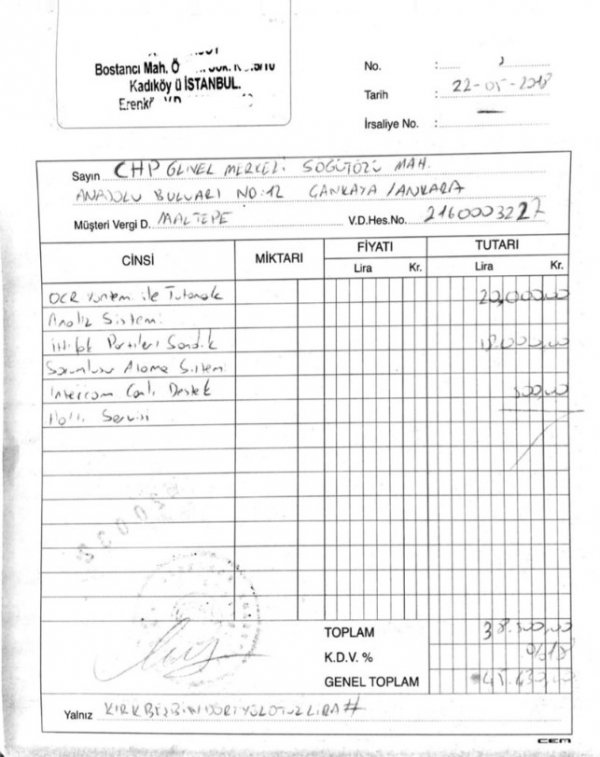 Bostancı Mah.
Kadıköy ü İSTANBUL.
No. :
Tarih : 22-05-2018
İrsaliye No. : —
Sayın CHP GENEL MERKEZİ SÖĞÜTÖZÜ MAH.
ANADOLU BULVARI NO:12 ÇANKAYA/ANKARA
Müşteri Vergi D. MALTEPE V.D.Hes.No. 2160003227
CİNSİ MİKTARI FİYATI TUTARI
Lira Kr. Lira Kr.
OCR Yöntemi ile Tutanak 20,000,00
Analiz Sistemi
İttifak Partileri Sandık 18.000,00
Sorumlusu Atama Sistemi
Intercom Canlı Destek 500,00
Hattı Servisi
TOPLAM 38.500,00
K.D.V. % %18
GENEL TOPLAM 45.430,00
Yalnız KIRKBEŞBİNDÖRTYÜZOTUZLİRA#
CEM